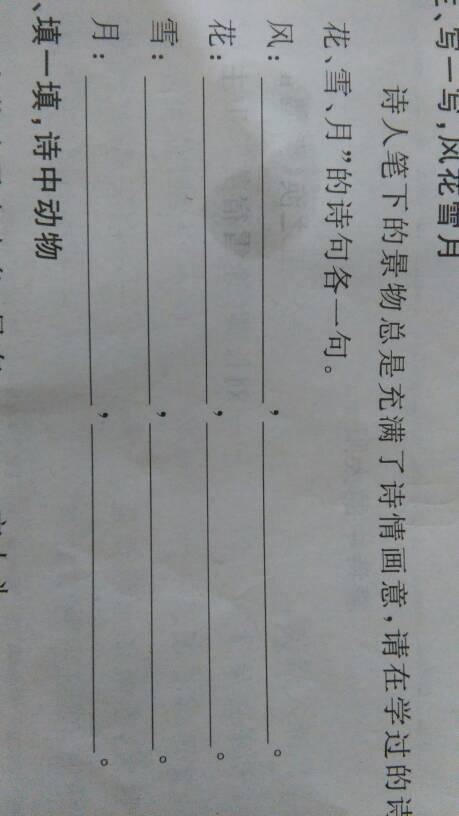 三、写一写,风花雪月
诗人笔下的景物总是充满了诗情画意,请在学过的诗
花、雪、月”的诗句各一句。
风: , 。
花: , 。
雪: , 。
月: , 。
、填一填,诗中动物